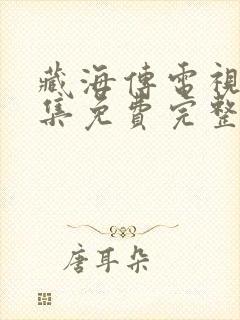 藏海傳電視
集免費完整
唐耳朵